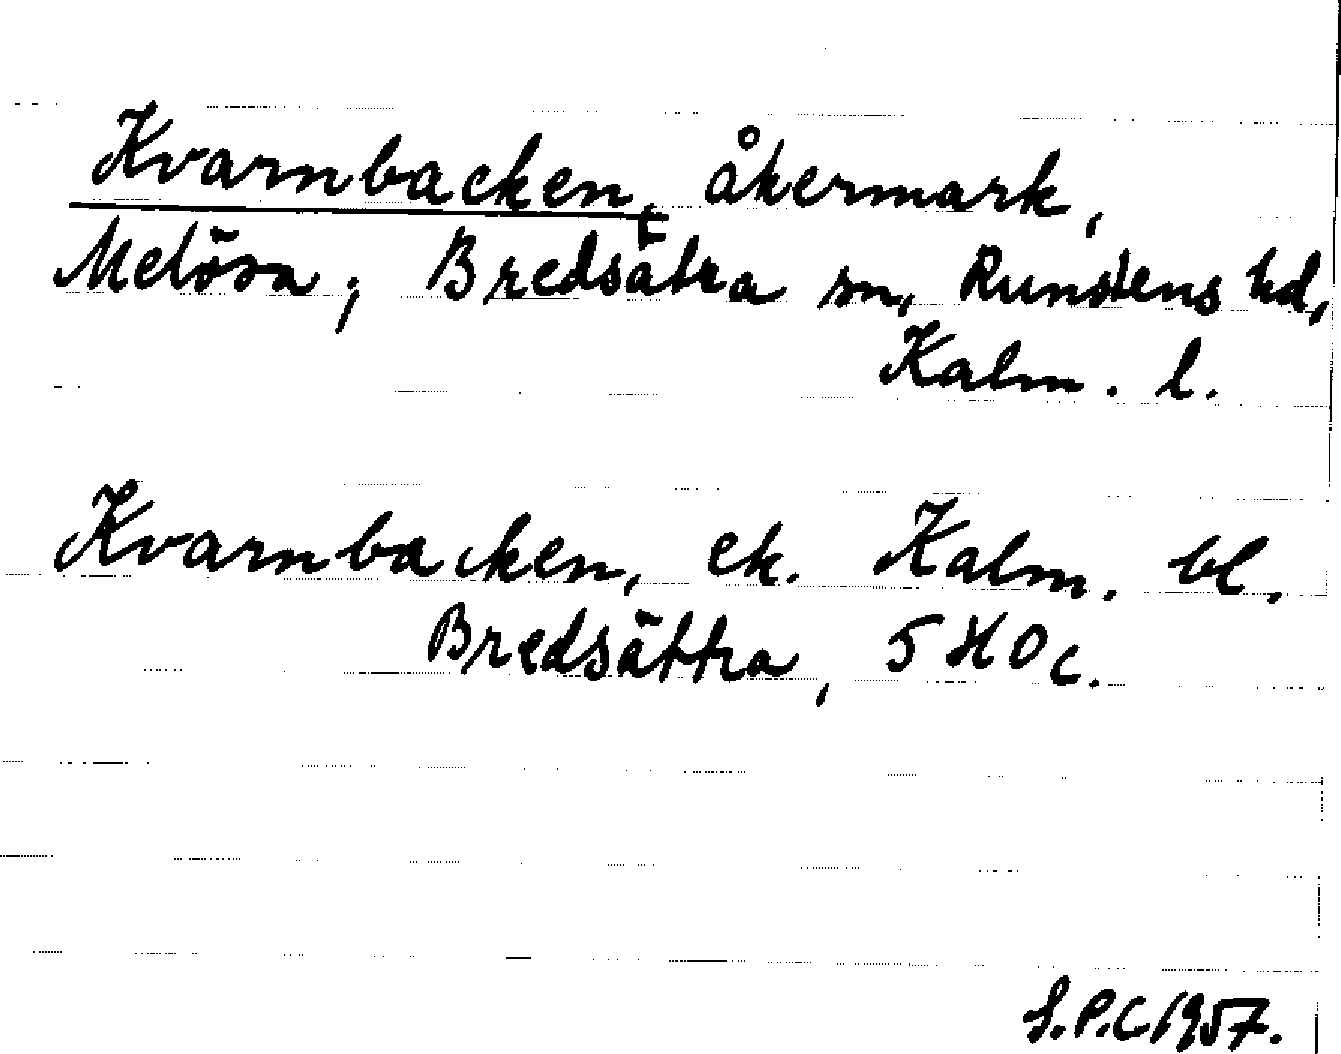 Kvarnbacken, åkermark,
Melösa; Bredsätra sn, Runstens hd,
Kalm. l.
Kvarnbacken, ek. Kalm. bl.
Bredsättra, 5 H 0 c.
S.P.C. 1957.